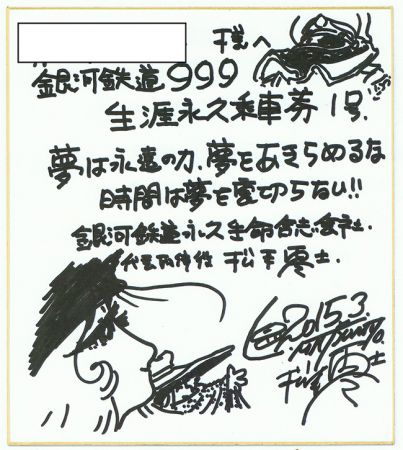 様へ
銀河鉄道999
生涯永久乗車券 1号.
夢は永遠の力、夢をあきらめるな
時間は夢を裏切らない!!
銀河鉄道永久生命合志会社.
代表取締役 松本零士.
2015.3.
零士